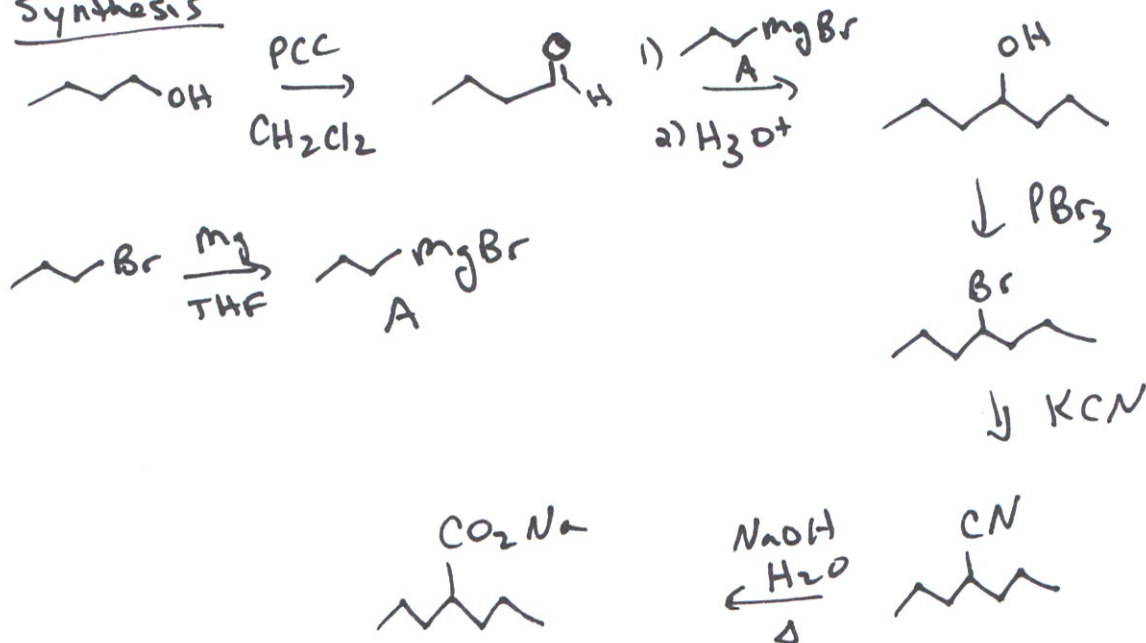 Synthesis
OH PCC CH2Cl2 O H 1) MgBr A 2) H3O+ OH
PBr3
Br Mg THF MgBr A
Br
KCN
CO2Na NaOH H2O Δ CN